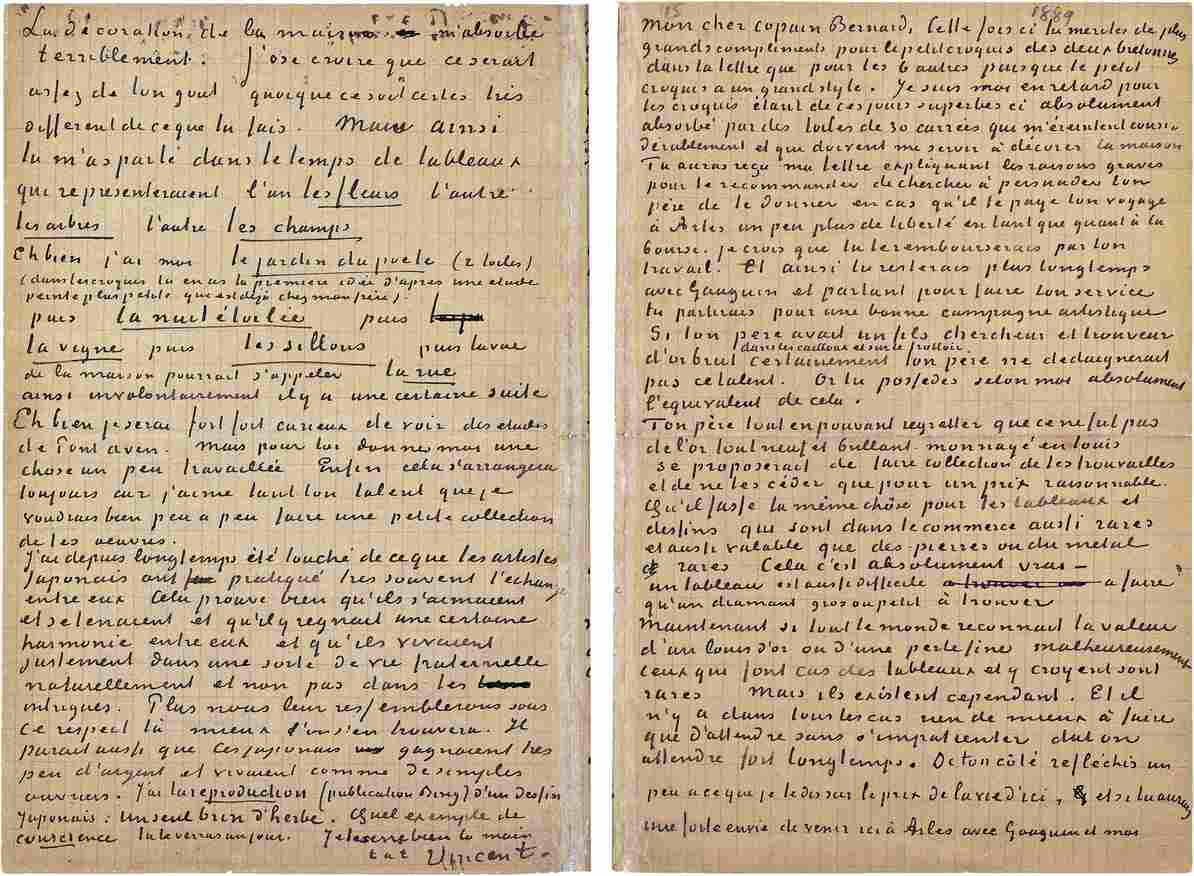 La décoration de la maison m'absorbe
terriblement. J'ose croire que ce serait
assez de ton gout quoique ce soit certes très
different de ce que tu fais. Mais ainsi
tu m'as parlé dans le temps de tableaux
qui representeraient l'un les fleurs l'autre
les arbres l'autre les champs
Eh bien j'ai moi le jardin du poète (2 toiles)
(dans les croquis tu en as la première idée d'après une etude
peinte plus petite qui est déjà chez mon frère).
puis la nuit étoilée puis
la vigne puis les sillons puis la vue
de la maison pourrait s'appeler la rue
ainsi involontairement il y a une certaine suite
Eh bien je serai fort fort curieux de voir des etudes
de Pont aven. Mais pour toi donne moi une
chose un peu travaillée Enfin cela s'arrangera
toujours car j'aime tant ton talent que je
voudrais bien peu a peu faire une petite collection
de tes oeuvres.
J'ai depuis longtemps été touché de ce que les artistes
Japonais ont pratiqué très souvent l'echange
entre eux Cela prouve bien qu'ils s'aimaient
et se tenaient et qu'il y regnait une certaine
harmonie entre eux et qu'ils vivaient
justement dans une sorte de vie fraternelle
naturellement et non pas dans les
intrigues. Plus nous leur ressemblerons sous
ce respect là mieux l'on s'en trouvera. Il
parait aussi que ces japonais gagnaient très
peu d'argent et vivaient comme de simples
ouvriers. J'ai la reproduction (publication Bing) d'un dessin
Japonais: un seul brin d'herbe. Quel exemple de
conscience tu le verras un jour. Je te serre bien la main
t à t Vincent.
15 1889
Mon cher copain Bernard, Cette fois ci tu merites de plus
grands compliments pour le petit croquis des deux bretonnes
dans ta lettre que pour les 6 autres puisque le petit
croquis a un grand style. Je suis moi en retard pour
les croquis étant de ces jours superbes ci absolument
absorbé par des toiles de 30 carrées qui m'éreintent consi-
dérablement et qui doivent me servir à décorer la maison
Tu auras reçu ma lettre expliquant les raisons graves
pour te recommander de chercher à persuader ton
père de te donner en cas qu'il te paye ton voyage
à Arles un peu plus de liberté en tant que quant à ta
bourse. je crois que tu le rembourserais par ton
travail. Et ainsi tu resterais plus longtemps
avec Gauguin et partant pour faire ton service
tu partirais pour une bonne campagne artistique
Si ton père avait un fils chercheur et trouveur
dans les cailloux et sur le trottoir
d'or brut certainement ton père ne dedaignerait
pas ce talent. Or tu possedes selon moi absolument
l'equivalent de cela.
Ton père tout en pouvant regretter que ce ne fut pas
de l'or tout neuf et brillant. monnayé en louis
se proposerait de faire collection de tes trouvailles
et de ne les céder que pour un prix raisonnable.
Qu'il fasse la même chôse pour tes tableaux et
dessins qui sont dans le commerce aussi rares
et aussi valable que des pierres ou du metal
rares Cela c'est absolument vrai –
un tableau est aussi difficile a trouver a faire
qu'un diamant gros ou petit à trouver
Maintenant si tout le monde reconnait la valeur
d'un louis d'or ou d'une perle fine malheureusement
ceux que font cas des tableaux et y croyent sont
rares Mais ils existent cependant. Et il
n'y a dans tous les cas rien de mieux à faire
que d'attendre sans s'impatienter dut on
attendre fort longtemps. De ton côté reflechis un
peu a ce que je te dis sur le prix de la vie d'ici, et si tu aurais
une forte envie de venir ici à Arles avec Gauguin et moi